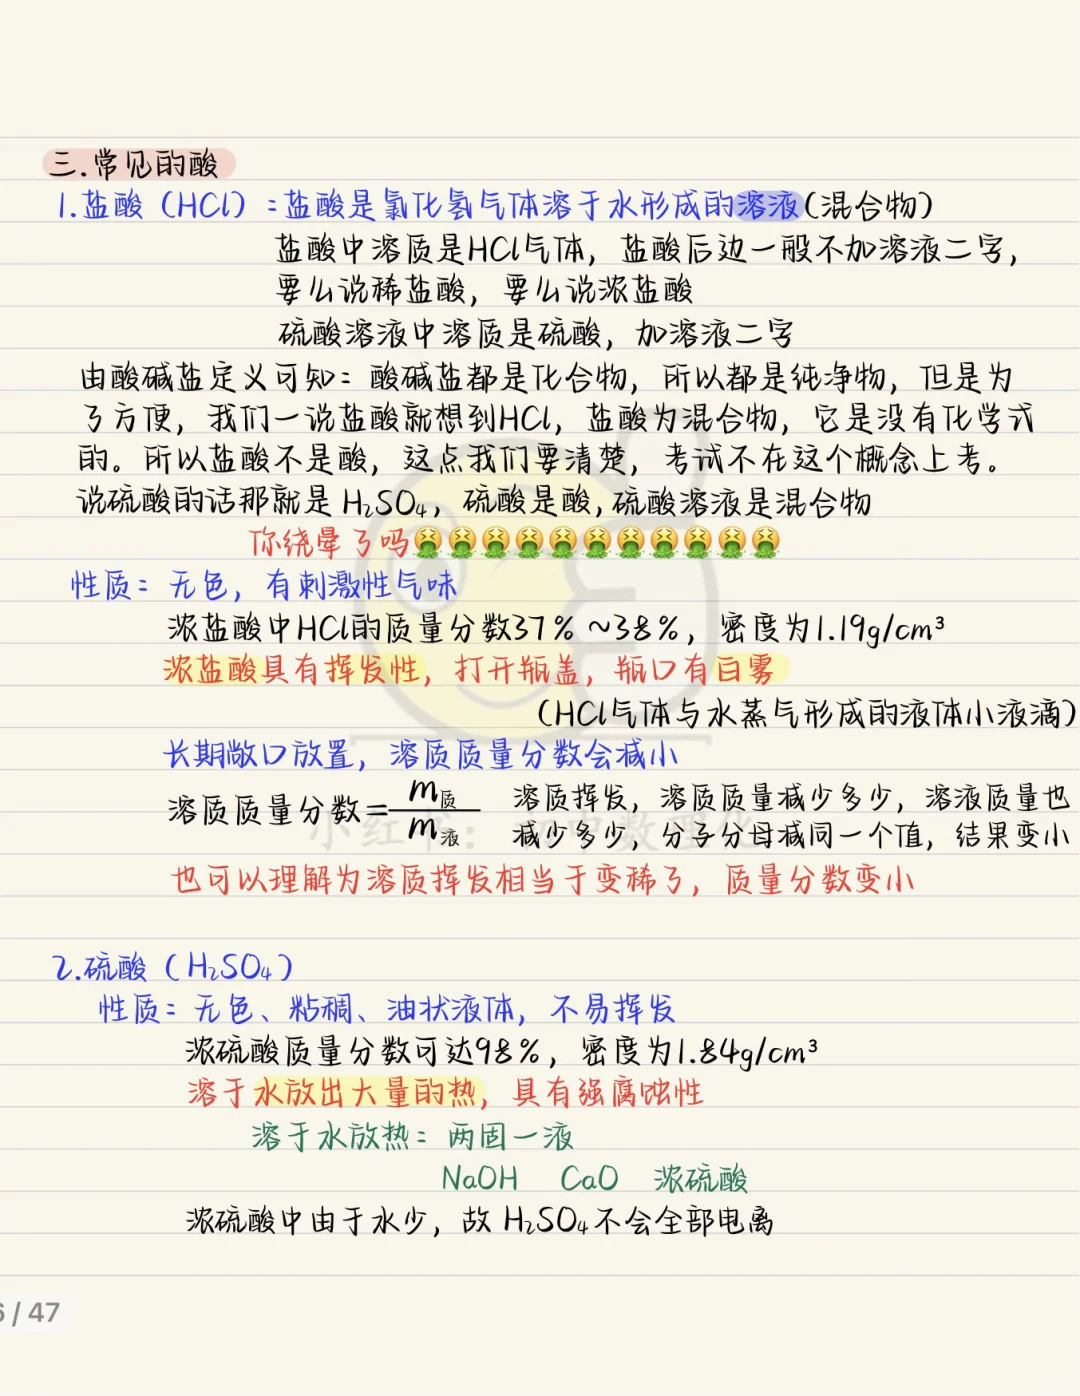 三.常见的酸
1.盐酸（HCl）:盐酸是氯化氢气体溶于水形成的溶液(混合物)
盐酸中溶质是HCl气体，盐酸后边一般不加溶液二字，
要么说稀盐酸，要么说浓盐酸
硫酸溶液中溶质是硫酸，加溶液二字
由酸碱盐定义可知：酸碱盐都是化合物，所以都是纯净物，但是为
了方便，我们一说盐酸就想到HCl，盐酸为混合物，它是没有化学式
的。所以盐酸不是酸，这点我们要清楚，考试不在这个概念上考。
说硫酸的话那就是H₂SO₄，硫酸是酸，硫酸溶液是混合物
你绕晕了吗🤮🤮🤮🤮🤮🤮🤮🤮🤮🤮🤮
性质：无色，有刺激性气味
浓盐酸中HCl的质量分数37%~38%，密度为1.19g/cm³
浓盐酸具有挥发性，打开瓶盖，瓶口有白雾
（HCl气体与水蒸气形成的液体小液滴）
长期敞口放置，溶质质量分数会减小
溶质质量分数=m质/m液 溶质挥发，溶质质量减少多少，溶液质量也
减少多少，分子分母减同一个值，结果变小
也可以理解为溶质挥发相当于变稀了，质量分数变小
2.硫酸（H₂SO₄）
性质：无色、粘稠、油状液体，不易挥发
浓硫酸质量分数可达98%，密度为1.84g/cm³
溶于水放出大量的热，具有强腐蚀性
溶于水放热：两固一液
NaOH CaO 浓硫酸
浓硫酸中由于水少，故H₂SO₄不会全部电离
6/47
小红书：初中数理化